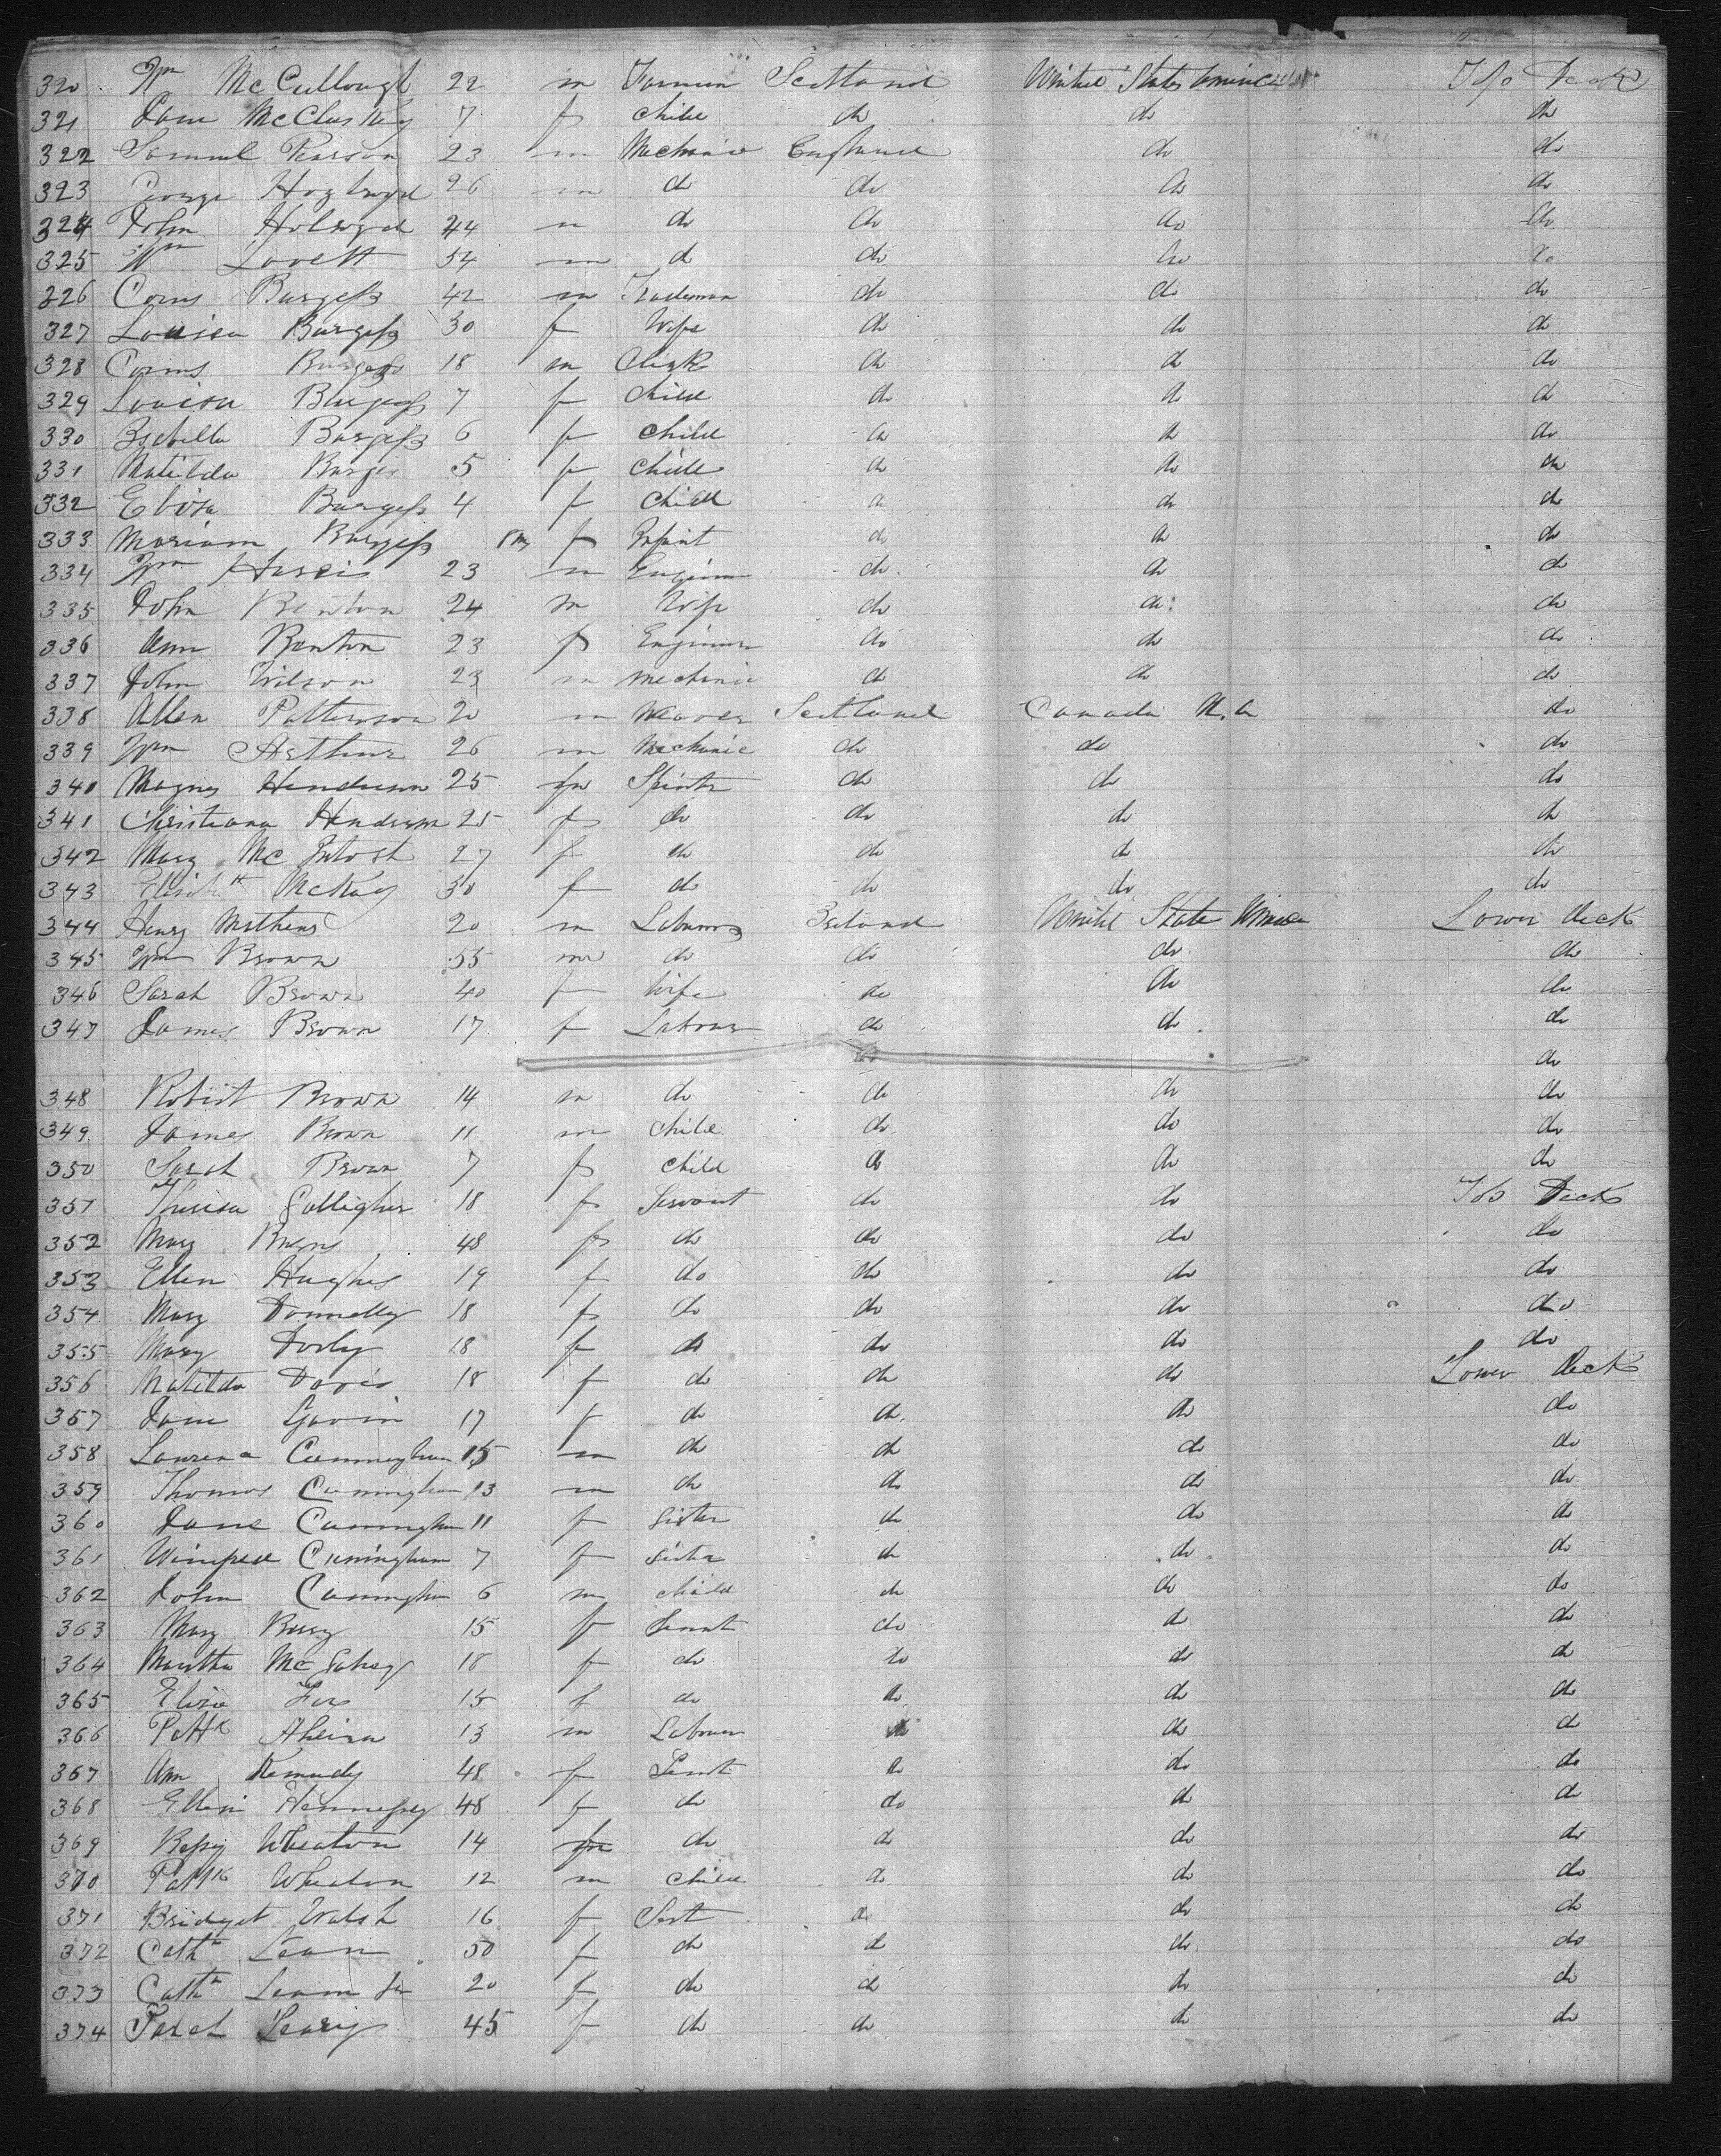 320 Wm McCullough 22 m Farmer Scotland United States America Top Deck
321 Jane McCluskey 7 f child do do do
322 Samuel Pearson 23 m Mechanic England do do
323 George 26 m do do do do
324 John Holroyd 44 m do do do do
325 Wm Lovett 34 m do do do do
326 Corns Burgess 42 m Tradesman do do do
327 Louisa Burgess 30 f Wife do do do
328 Corns Burgess 18 m Clerk do do do
329 Louisa Burgess 7 f child do do do
330 Isabella Burgess 6 f child do do do
331 Matilda Burges 5 f child do do do
332 Eliza Burgess 4 f child do do do
333 Mariam Burgess 8m f Infant do do do
334 Wm Harris 23 m Engineer do do do
335 John Benton 24 m Wife do do do
336 Ann Benton 23 f Engineer do do do
337 John Wilson 23 m mechanic do do do
338 Allen Patterson 20 m Weaver Scotland Canada N.A do
339 Wm Arthur 26 m Mechanic do do do
340 Magnes Henderson 25 Spinster do do do
341 Christiana Henderson 25 f do do do do
342 Mary McIntosh 27 f do do do do
343 Elizabth McKay 30 f do do do do
344 Henry Mathews 20 m Labourer Ireland United State America Lower deck
345 Wm Brown 55 m do do do do
346 Sarah Brown 40 f Wife do do do
347 James Brown 17 f Labourer do do do
do do
348 Robert Brown 14 m do do do do
349 James Brown 11 m child do do do
350 Sarah Brown 7 f child do do do
351 Theresa Galligher 18 f Servant do do Top Deck
352 Mary Burns 48 f do do do do
353 Ellen Hughes 19 f do do do do
354 Mary Donnelly 18 f do do do do
355 Mary 18 f do do do do
356 Matilda Davis 18 f do do do Lower deck
357 Jane Gavin 17 f do do do do
358 Laurence Cunningham 15 m do do do do
359 Thomas Cunningham 13 m do do do do
360 Jane Cunningham 11 f sister do do do
361 Cunningham 7 f sister do do do
362 John Cunningham 6 m child do do do
363 Mary 15 f Servt do do do
364 Martha 18 f do do do do
365 Eliza 15 f do do do do
366 Pattk Ahern 13 m Labourer do do do
367 Ann Kennedy 48 f Servt do do do
368 Ellen Hennessey 48 f do do do do
369 Bessy Wheaton 14 do do do do
370 Pattk Wheaton 12 m child do do do
371 Bridget Walsh 16 f Sert do do do
372 Cathn Leam 50 f do do do do
373 Cathn Leam Jr 20 f do do do do
374 Sarah Leary 45 f do do do do